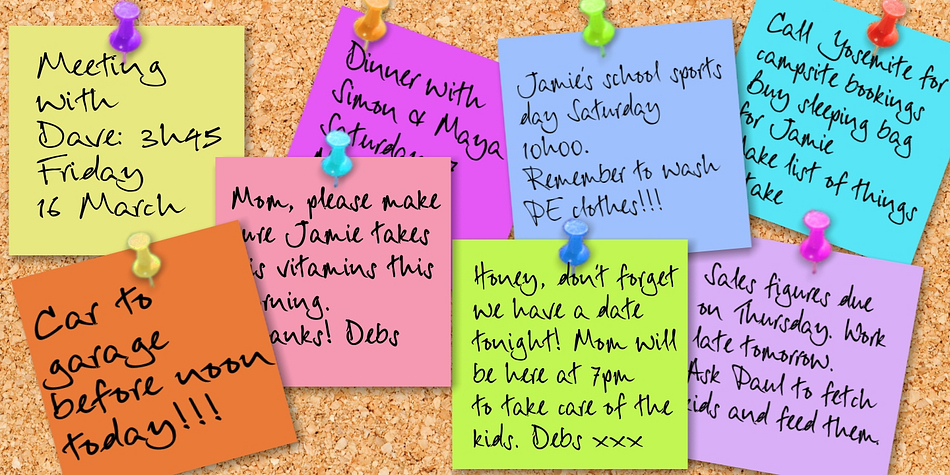 Meeting
with
Dave: 3h45
Friday
16 March
Dinner with
Simon & Maya
Saturday
Jamie's school sports
day Saturday
10h00.
Remember to wash
PE clothes!!!
Call Yosemite for
campsite bookings
Buy sleeping bag
for Jamie
ake list of things
take
Mom, please make
ure Jamie takes
is vitamins this
rning.
anks! Debs
Car to
garage
before noon
today!!!
Honey, don't forget
we have a date
tonight! Mom will
be here at 7pm
to take care of the
kids. Debs xxx
Sales figures due
on Thursday. Work
late tomorrow.
Ask Paul to fetch
kids and feed them.